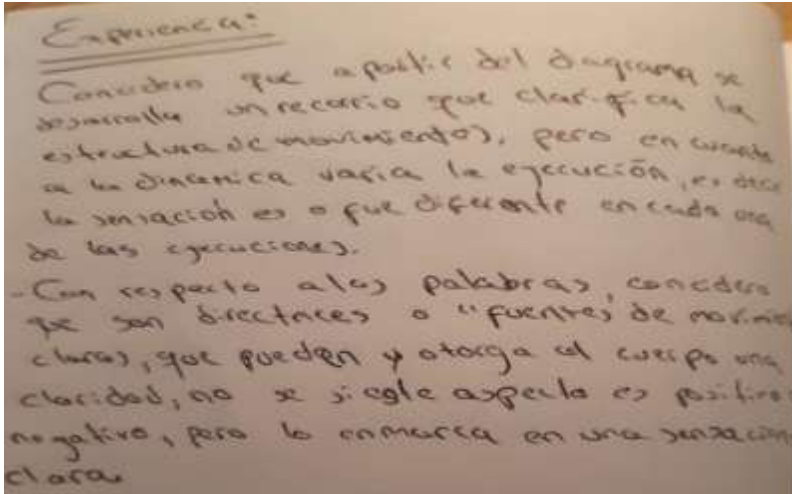 Experiencia:
Concidero que a partir del diagrama se
desarrolla un recorrio que clarifica la
estructura de movimiento), pero en cuanto
a la dinamica varia la ejecución, es decir
la sensación es o fue diferente en cada una
de las ejecuciones.
- Con respecto a las palabras, concidero
que son directrices o "fuentes de movimie
claras, que pueden y otorga al cuerpo una
claridad, no se si este aspecto es positivo
negativo, pero lo enmarca en una sensación
clara.